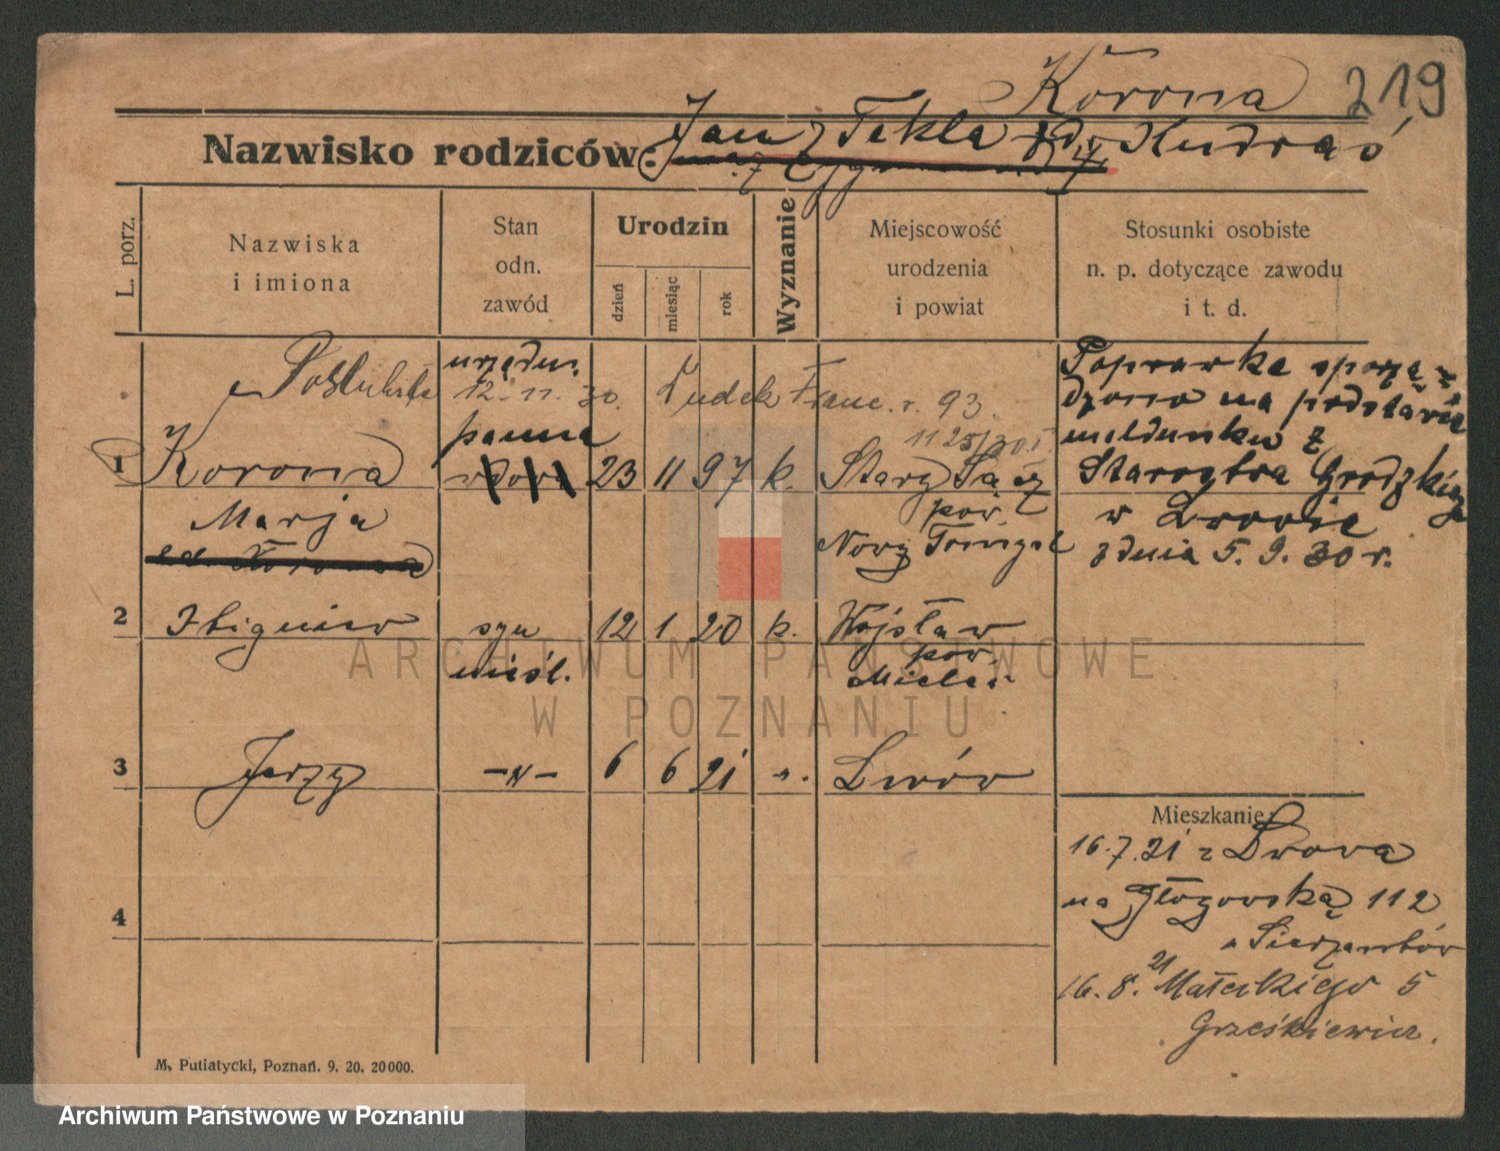 Korona 219
Nazwisko rodziców: Jan, Tekla zd. Kudraś
L. porz.
Nazwiska i imiona
Stan odn. zawód
Urodzin
dzień
miesiąc
rok
Wyznanie
Miejscowość urodzenia i powiat
Stosunki osobiste n. p. dotyczące zawodu i t. d.
urzędn.
12.11.30. Ludek Franc. r. 93.
1 Korona panna wdowa 23 11 97 k. Stary Sącz
Marja pow.
Nowy Tomyśl
Poprawka sporzą-
dzono na podstawie
meldunku z
Starostwa Grodzkiego
w Lwowie
z dnia 5.9.30 r.
2 Zbigniew syn 12 1 20 k. Wojsław
nieśl. pow.
Mielec
3 Jerzy -„- 6 6 21 Lwów
4
Mieszkanie:
16.7.21 z Lwowa
na Głogowską 112
16.8.21 Małeckiego 5
Grześkiewicz.
M. Putiatycki, Poznań. 9. 20. 20000.
ARCHIWUM PAŃSTWOWE
W POZNANIU
Archiwum Państwowe w Poznaniu